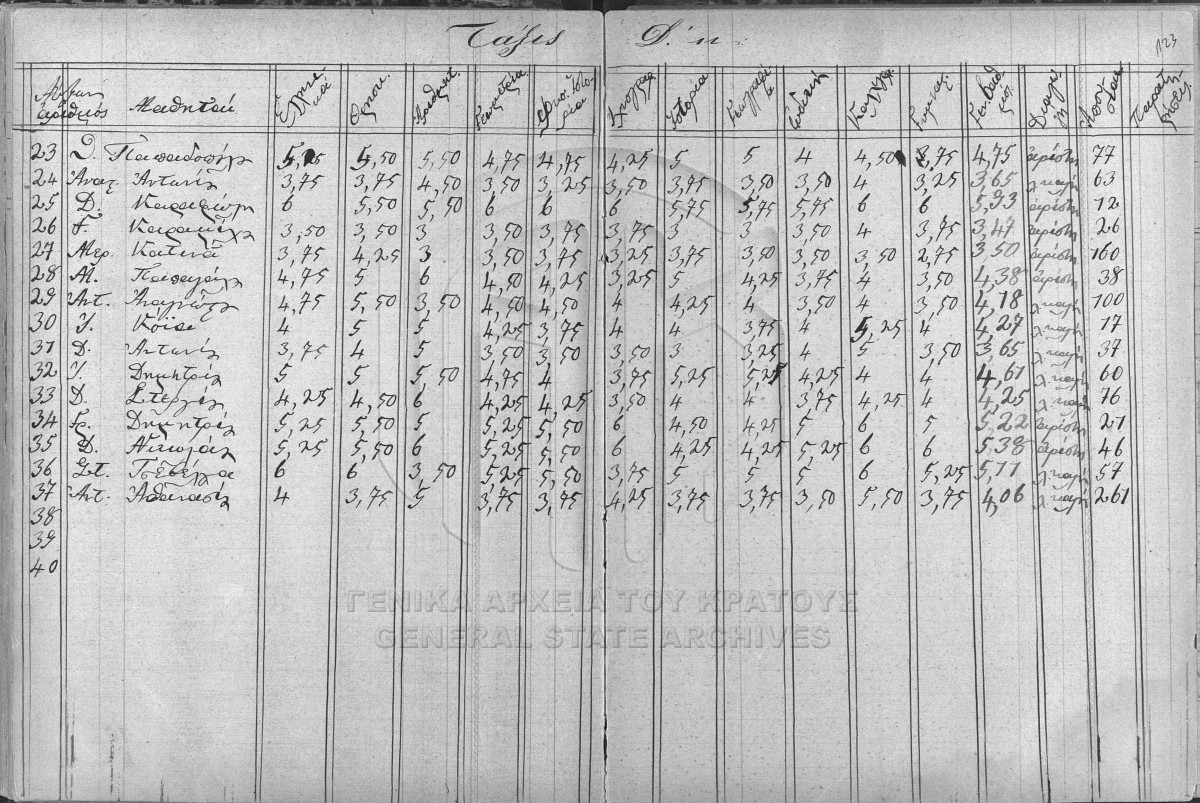 Τάξις Δ. η.
123
Αὔξων ἀριθμός Μαθηταί Ἑλληνικά Θρησκ. Ἀριθμητ. Γεωμετρία Φυσ. Ἱστορία Ἰχνογραφ. Ἱστορία Γεωγραφία ᾨδική Καλλιγρ. Γυμνασ. Γεν. βαθμός Διαγωγή Ἀπουσίαι Παρατηρήσεις
23 Δ. Παπαδοπούλ 5,25 5,50 5,50 4,75 4,75 4,25 5 5 4 4,50 3,75 4,75 ἀρίστη 77
24 Ἀναγ. Ἀντωνίου 3,75 3,75 4,50 3,50 3,25 3,50 3,75 3,50 3,50 4 3,25 3,65 λ. καλή 63
25 Δ. 6 5,50 5,50 6 6 6 5,75 5,75 5,75 6 6 5,93 ἀρίστη 12
26 Γ. 3,50 3,50 3 3,50 3,75 3,75 3 3 3,50 4 3,75 3,47 ἀρίστη 26
27 Μερ. Κατινᾶ 3,75 4,25 3 3,50 3,75 3,25 3,75 3,50 3,50 3,50 2,75 3,50 ἀρίστη 160
28 Μ. 4,75 5 6 4,50 4,25 3,25 5 4,25 3,75 4 3,50 4,38 ἀρίστη 38
29 Ἀντ. Ἀναγνώστ 4,75 5,50 3,50 4,50 4,50 4 4,25 4 3,50 4 3,50 4,18 λ. καλή 100
30 Ἰ. Κόϊα 4 5 5 4,25 3,75 4 4 3,75 4 5,25 4 4,27 λ. καλή 17
31 Δ. Ἀντωνίου 3,75 4 5 3,50 3,50 3,50 3 3,25 4 5 3,50 3,65 λ. καλή 37
32 Ἰ. Δημητρίου 5 5 5,50 4,75 4 3,75 5,25 5,25 4,25 4 4 4,61 λ. καλή 60
33 Δ. Στεργίου 4,25 4,50 6 4,25 4,25 3,50 4 4 3,75 4,25 4 4,25 λ. καλή 76
34 Γρ. Δημητρίου 5,25 5,50 5 5,25 5,50 6 4,50 4,25 5 6 5 5,22 ἀρίστη 21
35 Δ. Νικολάου 5,25 5,50 6 5,25 5,50 6 4,25 4,25 5,25 6 6 5,38 ἀρίστη 46
36 Στ. 6 6 3,50 5,25 5,50 3,75 5 5 5 6 5,25 5,11 λ. καλή 57
37 Ἀντ. Ἀθανασίου 4 3,75 5 3,75 3,75 4,25 3,75 3,75 3,50 5,50 3,75 4,06 λ. καλή 261
38
39
40
ΓΕΝΙΚΑ ΑΡΧΕΙΑ ΤΟΥ ΚΡΑΤΟΥΣ
GENERAL STATE ARCHIVES